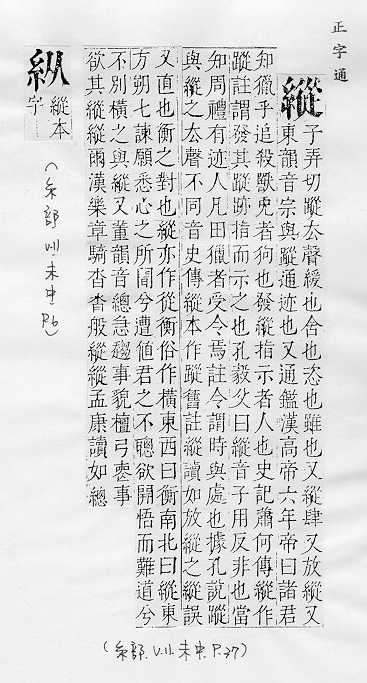 正字通
縱
子弄切蹤去聲緩也舍也恣也雖也又縱肆又放縱又
東韻音宗與蹤通迹也又通鑑漢高帝六年帝曰諸君
知獵乎追殺獸兔者狗也發縱指示者人也史記蕭何傳縱作
蹤註謂發其蹤跡指而示之也孔毅父曰縱音子用反非也當
知周禮有迹人凡田獵者受令焉註令謂時與處也據孔說蹤
與縱之去聲不同音史傳縱本作蹤舊註縱讀如放縱之縱誤
又直也衡之對也縱亦作從衡俗作橫東西曰衡南北曰縱東
方朔七諫願悉心之所聞兮遭値君之不聰欲開悟而難道兮
不別橫之與縱又董韻音總急趨事貌檀弓喪事
欲其縱縱爾漢樂章騎沓沓般縱縱孟康讀如總
縦
縱本
字
(糸部 VII. 未中 P.6)
(糸部. V.11. 未中. P.37)